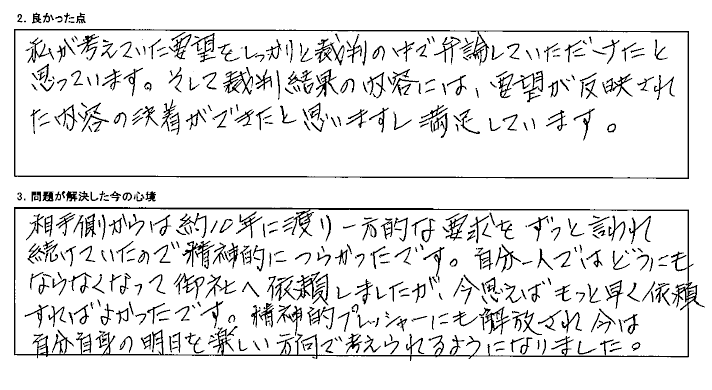 2. 良かった点
私が考えていた要望をしっかりと裁判の中で弁論していただけたと
思っています。そして裁判結果の内容には、要望が反映され
た内容の決着ができたと思いますし満足しています。
3. 問題が解決した今の心境
相手側からは約10年に渡り一方的な要求をずっと言われ
続けていたので精神的につらかったです。自分一人ではどうにも
ならなくなって御社へ依頼しましたが、今思えばもっと早く依頼
すればよかったです。精神的プレッシャーにも解放され今は
自分自身の明日を楽しい方向で考えられるようになりました。